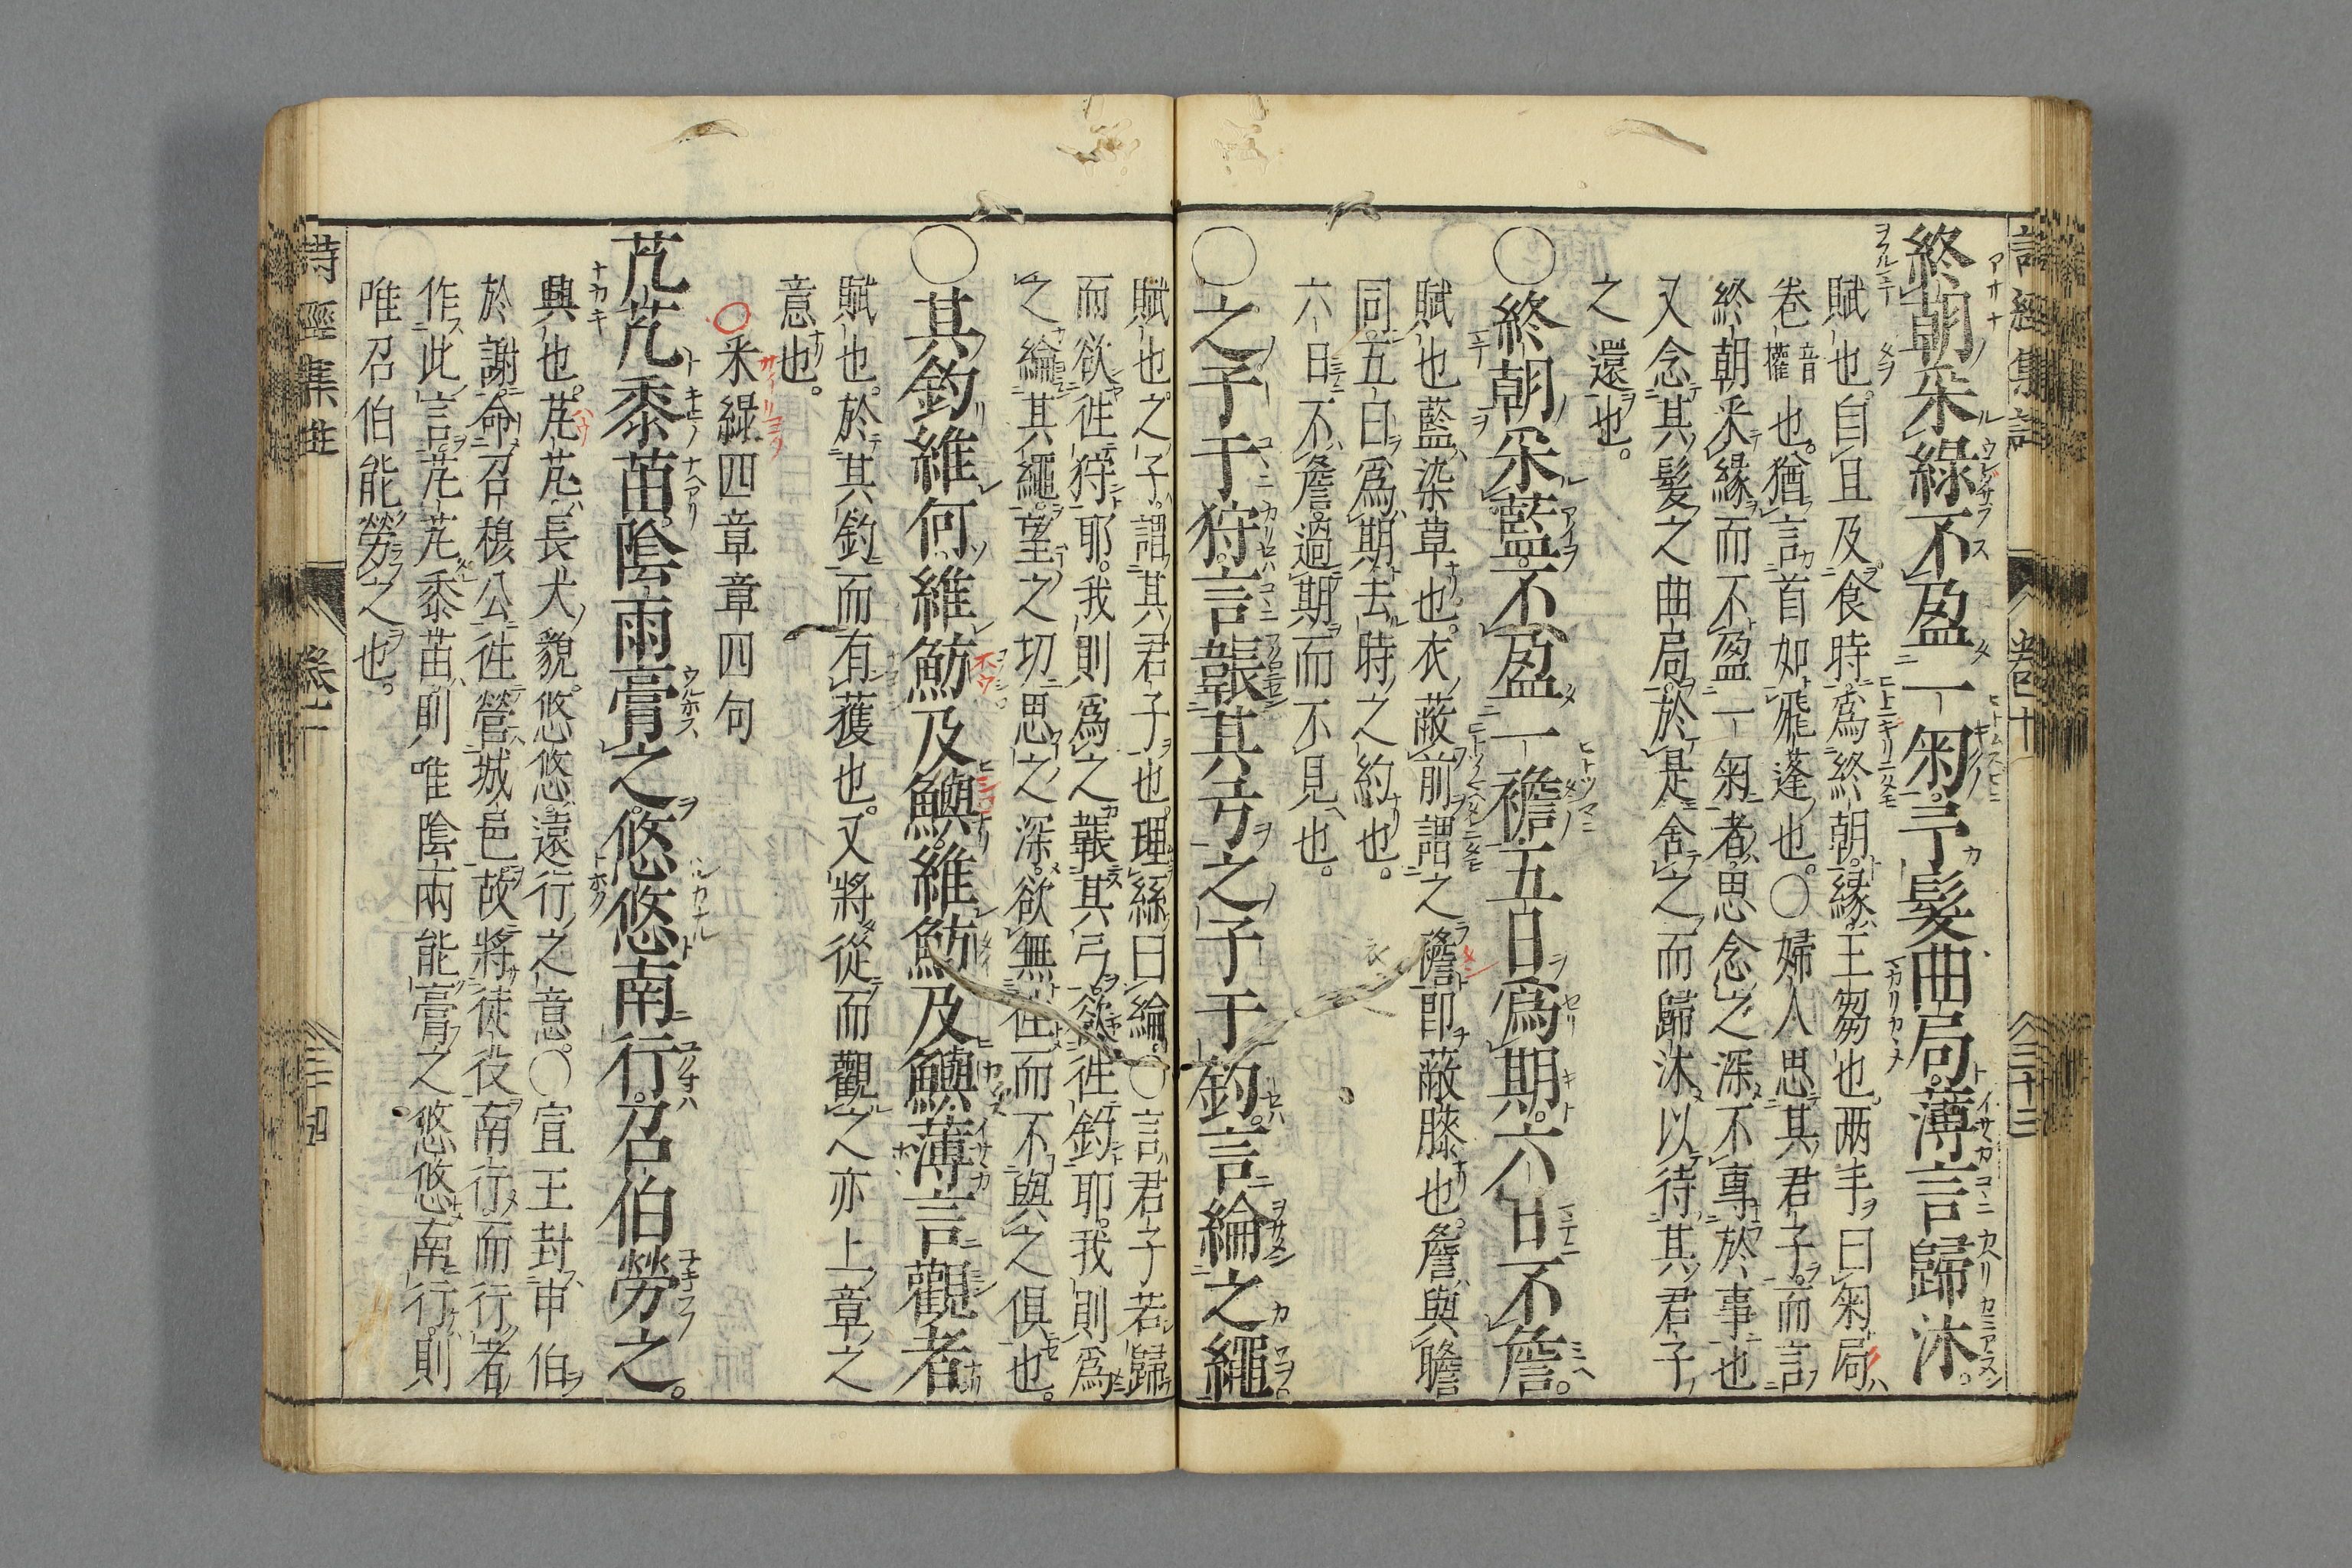 終朝采綠不盈一匊予髮曲局薄言歸沐。
賦也。自且及食時。爲終朝。緑王芻也。两手曰匊局
卷音權也。猶言首如飛蓬也。○婦人思其君子。而言
終朝采緑而不盈一匊者。思念之深不專於事也
又念其髮之曲局。於是舍之而歸沐以待其君子
之還也。
○終朝采藍不盈一襜五日爲期。六日不詹。
賦也藍染草也。衣蔽前謂之襜即蔽膝也。詹與瞻
同。五日爲期去時之約也。
六日不詹。過期而不見也。
○之子于狩。言韔其弓之子于釣。言綸之繩
賦也。之子。謂其君子也。理絲曰綸。○言君子若歸
而欲徃狩耶。我則爲之韔其弓。欲徃釣耶。我則爲
之綸其繩。望之切思之深。欲無徃而不與之俱也。
○其釣維何維魴及鱮。維魴及鱮薄言觀者
賦也。於其釣而有獲也。又將從而觀之亦上章之
意也。
○采緑四章章四句
芃芃黍苗。陰雨膏之。悠悠南行。召伯勞之。
興也。芃芃長大貌。悠悠遠行之意。○宣王封申伯
於謝。命召穆公徃營城邑。故將徒役南行。而行者
作此。言芃芃黍苗。則唯陰雨能膏之。悠悠南行。則
唯召伯能勞之也。
詩經集註
卷十
三十三
詩經集註
三十四